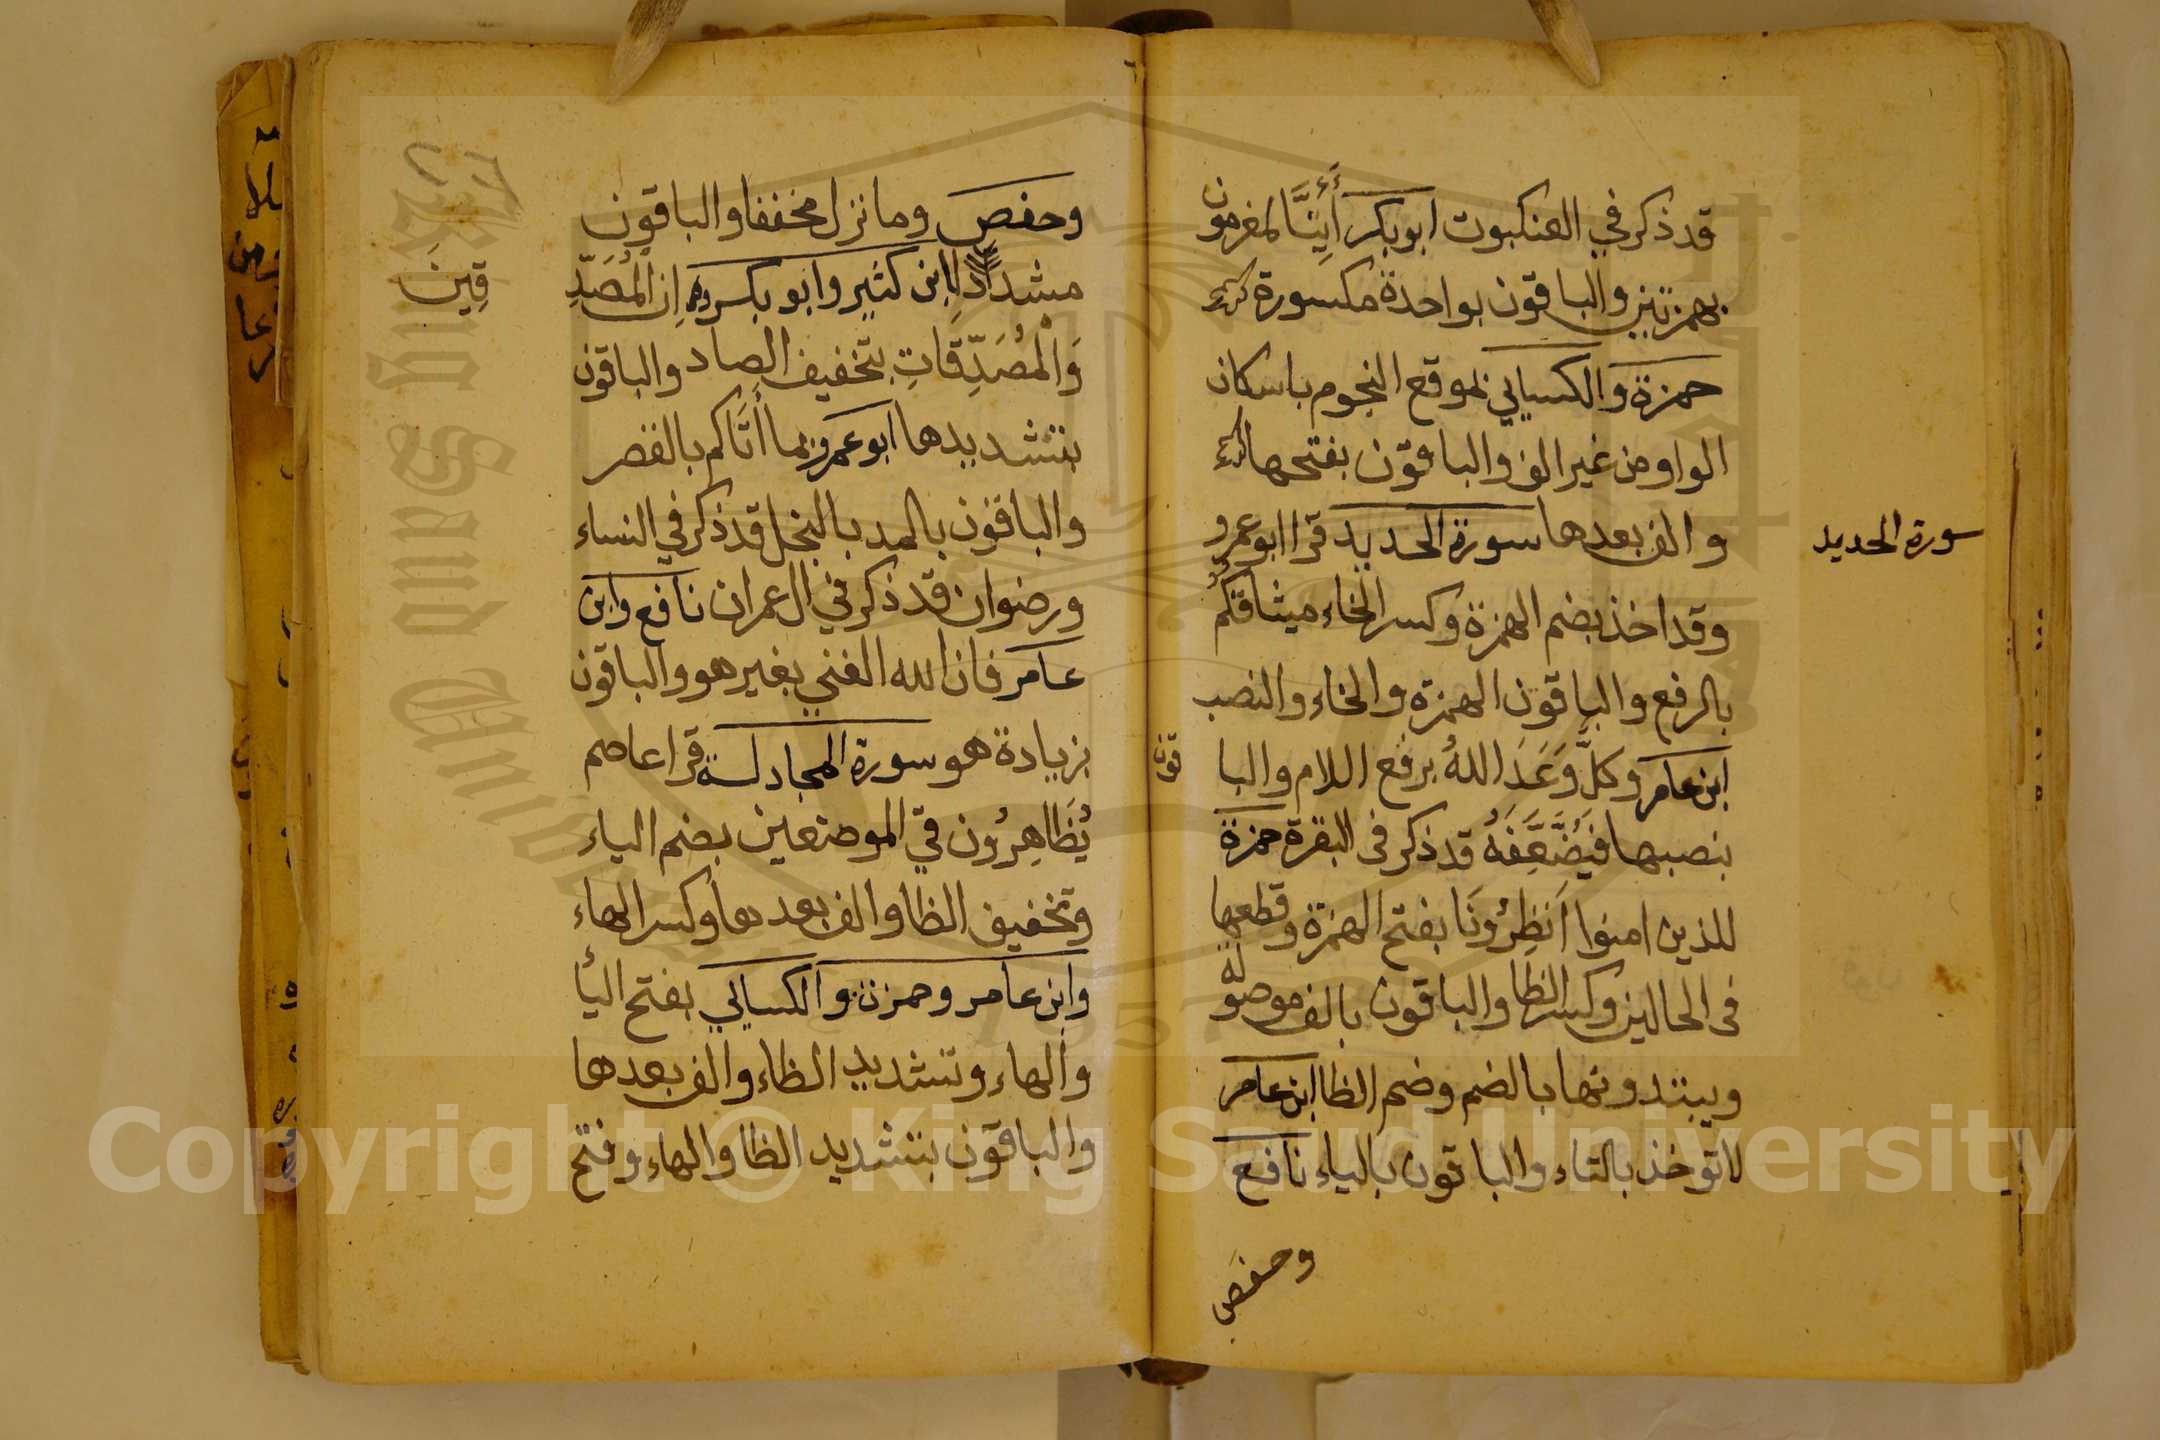 قد ذكر في العنكبوت ابو بكر أَئِنَّا لمغرمون
بهمزتين والباقون بواحدة مكسورة
حمزة والكسايي بموقع النجوم باسكان
الواو من غير الف والباقون بفتحها
والف بعدها سورة الحديد قرا ابو عمرو
سورة الحديد
وقد اخذ بضم الهمزة وكسر الخاء ميثاقكم
بالرفع والباقون الهمزة والخاء والنصب
ابن عامر وكلٌّ وَعَدَ اللهُ برفع اللام والبا
قون
بنصبها فيُضَعِّفَهُ قد ذكر في البقرة حمزة
للذين امنوا اَنظِرُونَا بفتح الهمزة وقطعها
في الحالين وكسر الظا والباقون بالف موصولة
ويبتدونها بالضم وضم الظا ابن عامر
لا توخذ بالتاء والباقون بالياء نافع
وحفص
وحفص وما نزل مخففا والباقون
مشددا ابن كثير وابو بكر اِن الْمُصَدِّ
قِينَ
وَالْمُصَدِّقَاتِ بتخفيف الصاد والباقون
بتشديدها ابو عمرو بما أتَاكم بالقصر
والباقون بالمد بالبخل قد ذكر في النساء
ورضوان قد ذكر في ال عمران نافع وابن
عامر فان الله الغني بغير هو والباقون
بزيادة هو سورة المجادلة قرا عاصم
يُظَاهِرُون في الموضعين بضم الياء
وتخفيف الظا والف بعدها وكسر الهاء
وابن عامر وحمزة والكسايي بفتح اليأ
والهاء وتشديد الظاء والف بعدها
والباقون بتشديد الظا والهاء وفتح
Copyright © King Saud University
King Saud University
1957